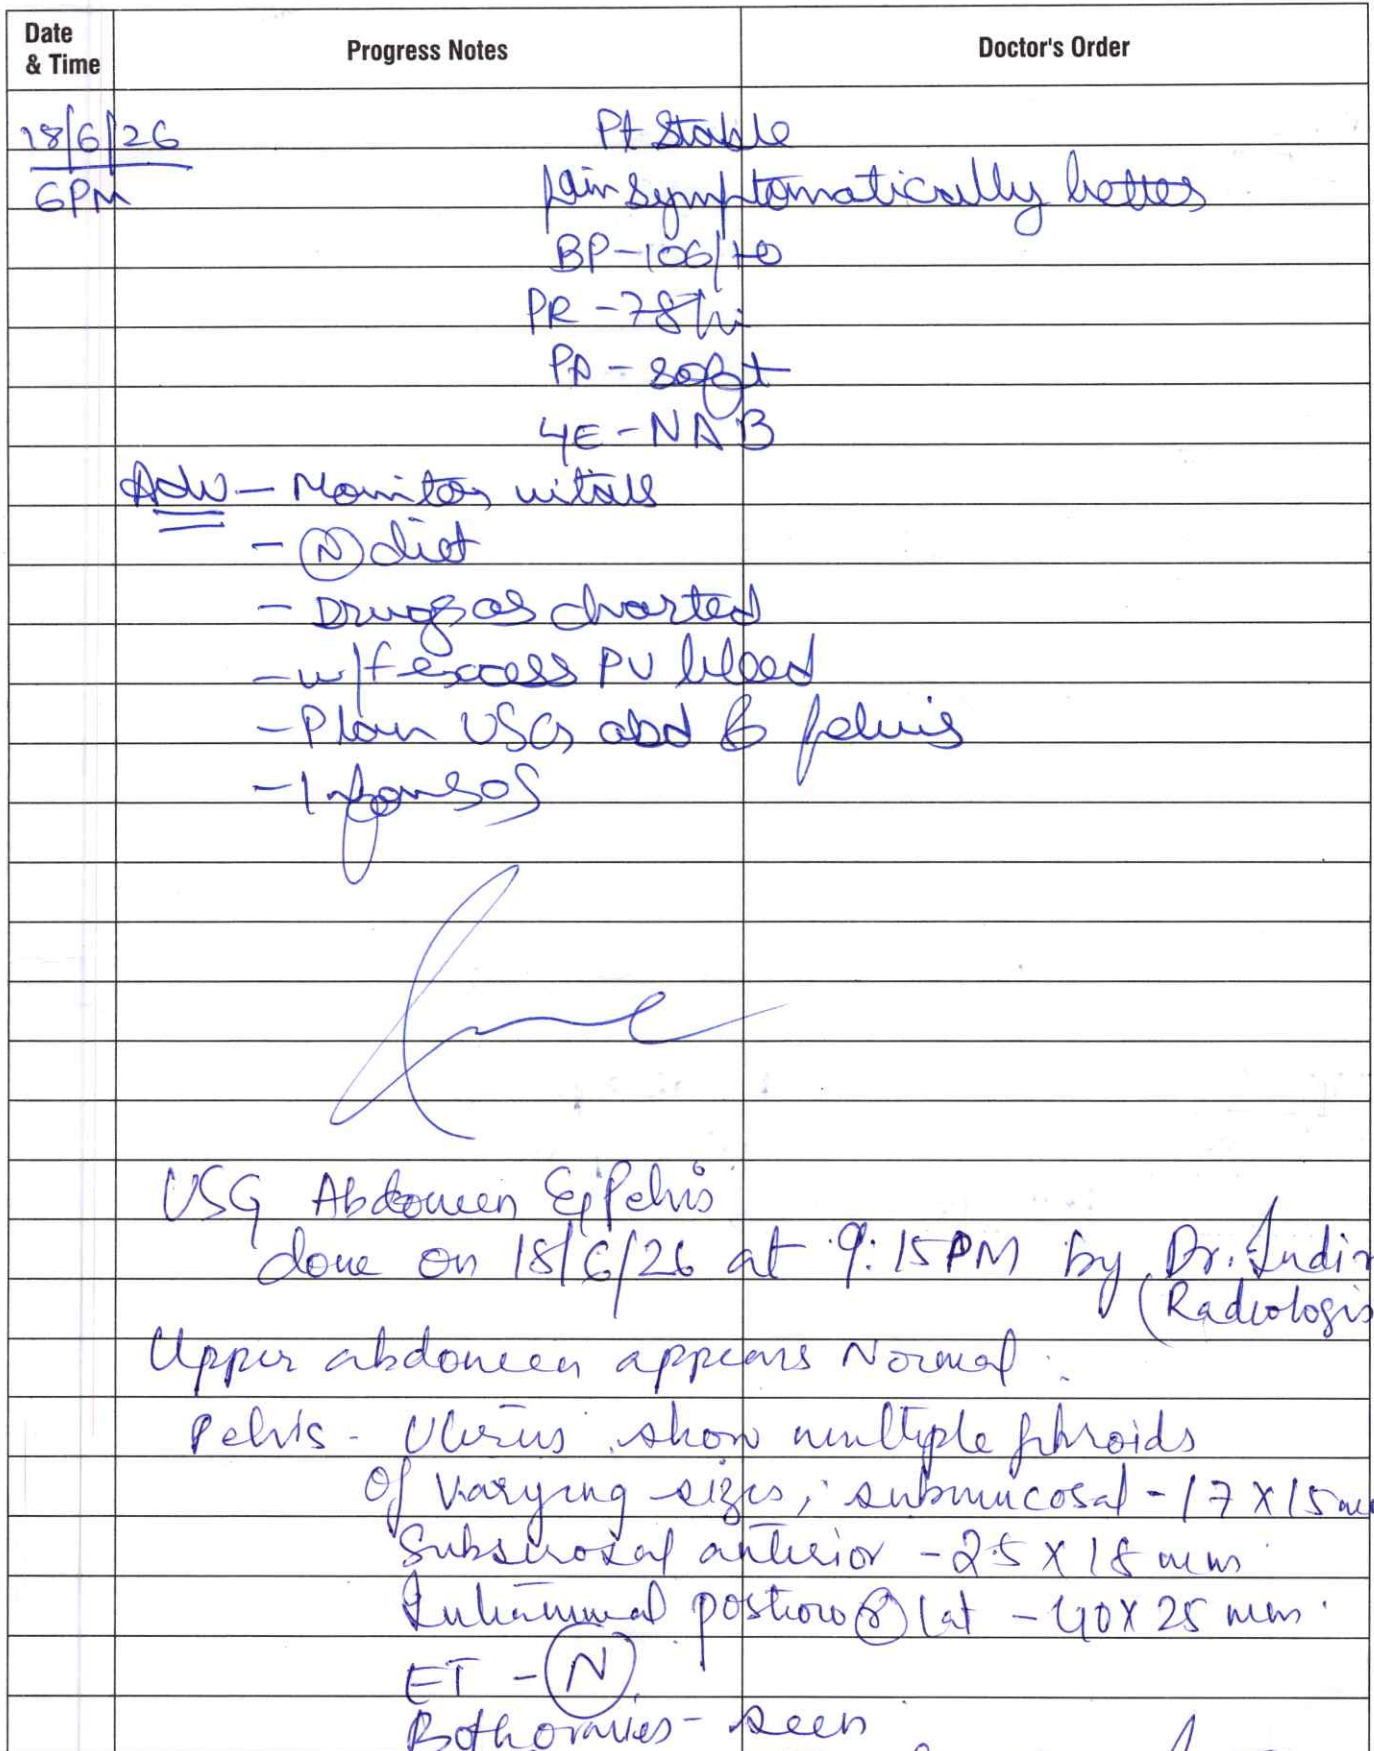 Date & Time
Progress Notes
Doctor's Order
18/6/26
6PM
Pt Stable
pain symptomatically better
BP-106/70
PR-78/
PA-soft
4E-NAB
Adv - Monitor vitals
- (N) diet
- Drugs as charted
- w/f excess PV bleed
- Plan USG abd & pelvis
- Inform SOS
USG Abdomen & Pelvis
done on 18/6/26 at 9:15PM by Dr. Indir
(Radiologis
Upper abdomen appears Normal.
Pelvis - Uterus show multiple fibroids
of varying sizes; submucosal - 17 X 15 mm
Subserosal anterior - 25 X 18 mm
Intramural posterior (R) lat - 40 X 25 mm.
ET - (N)
Both ovaries - seen